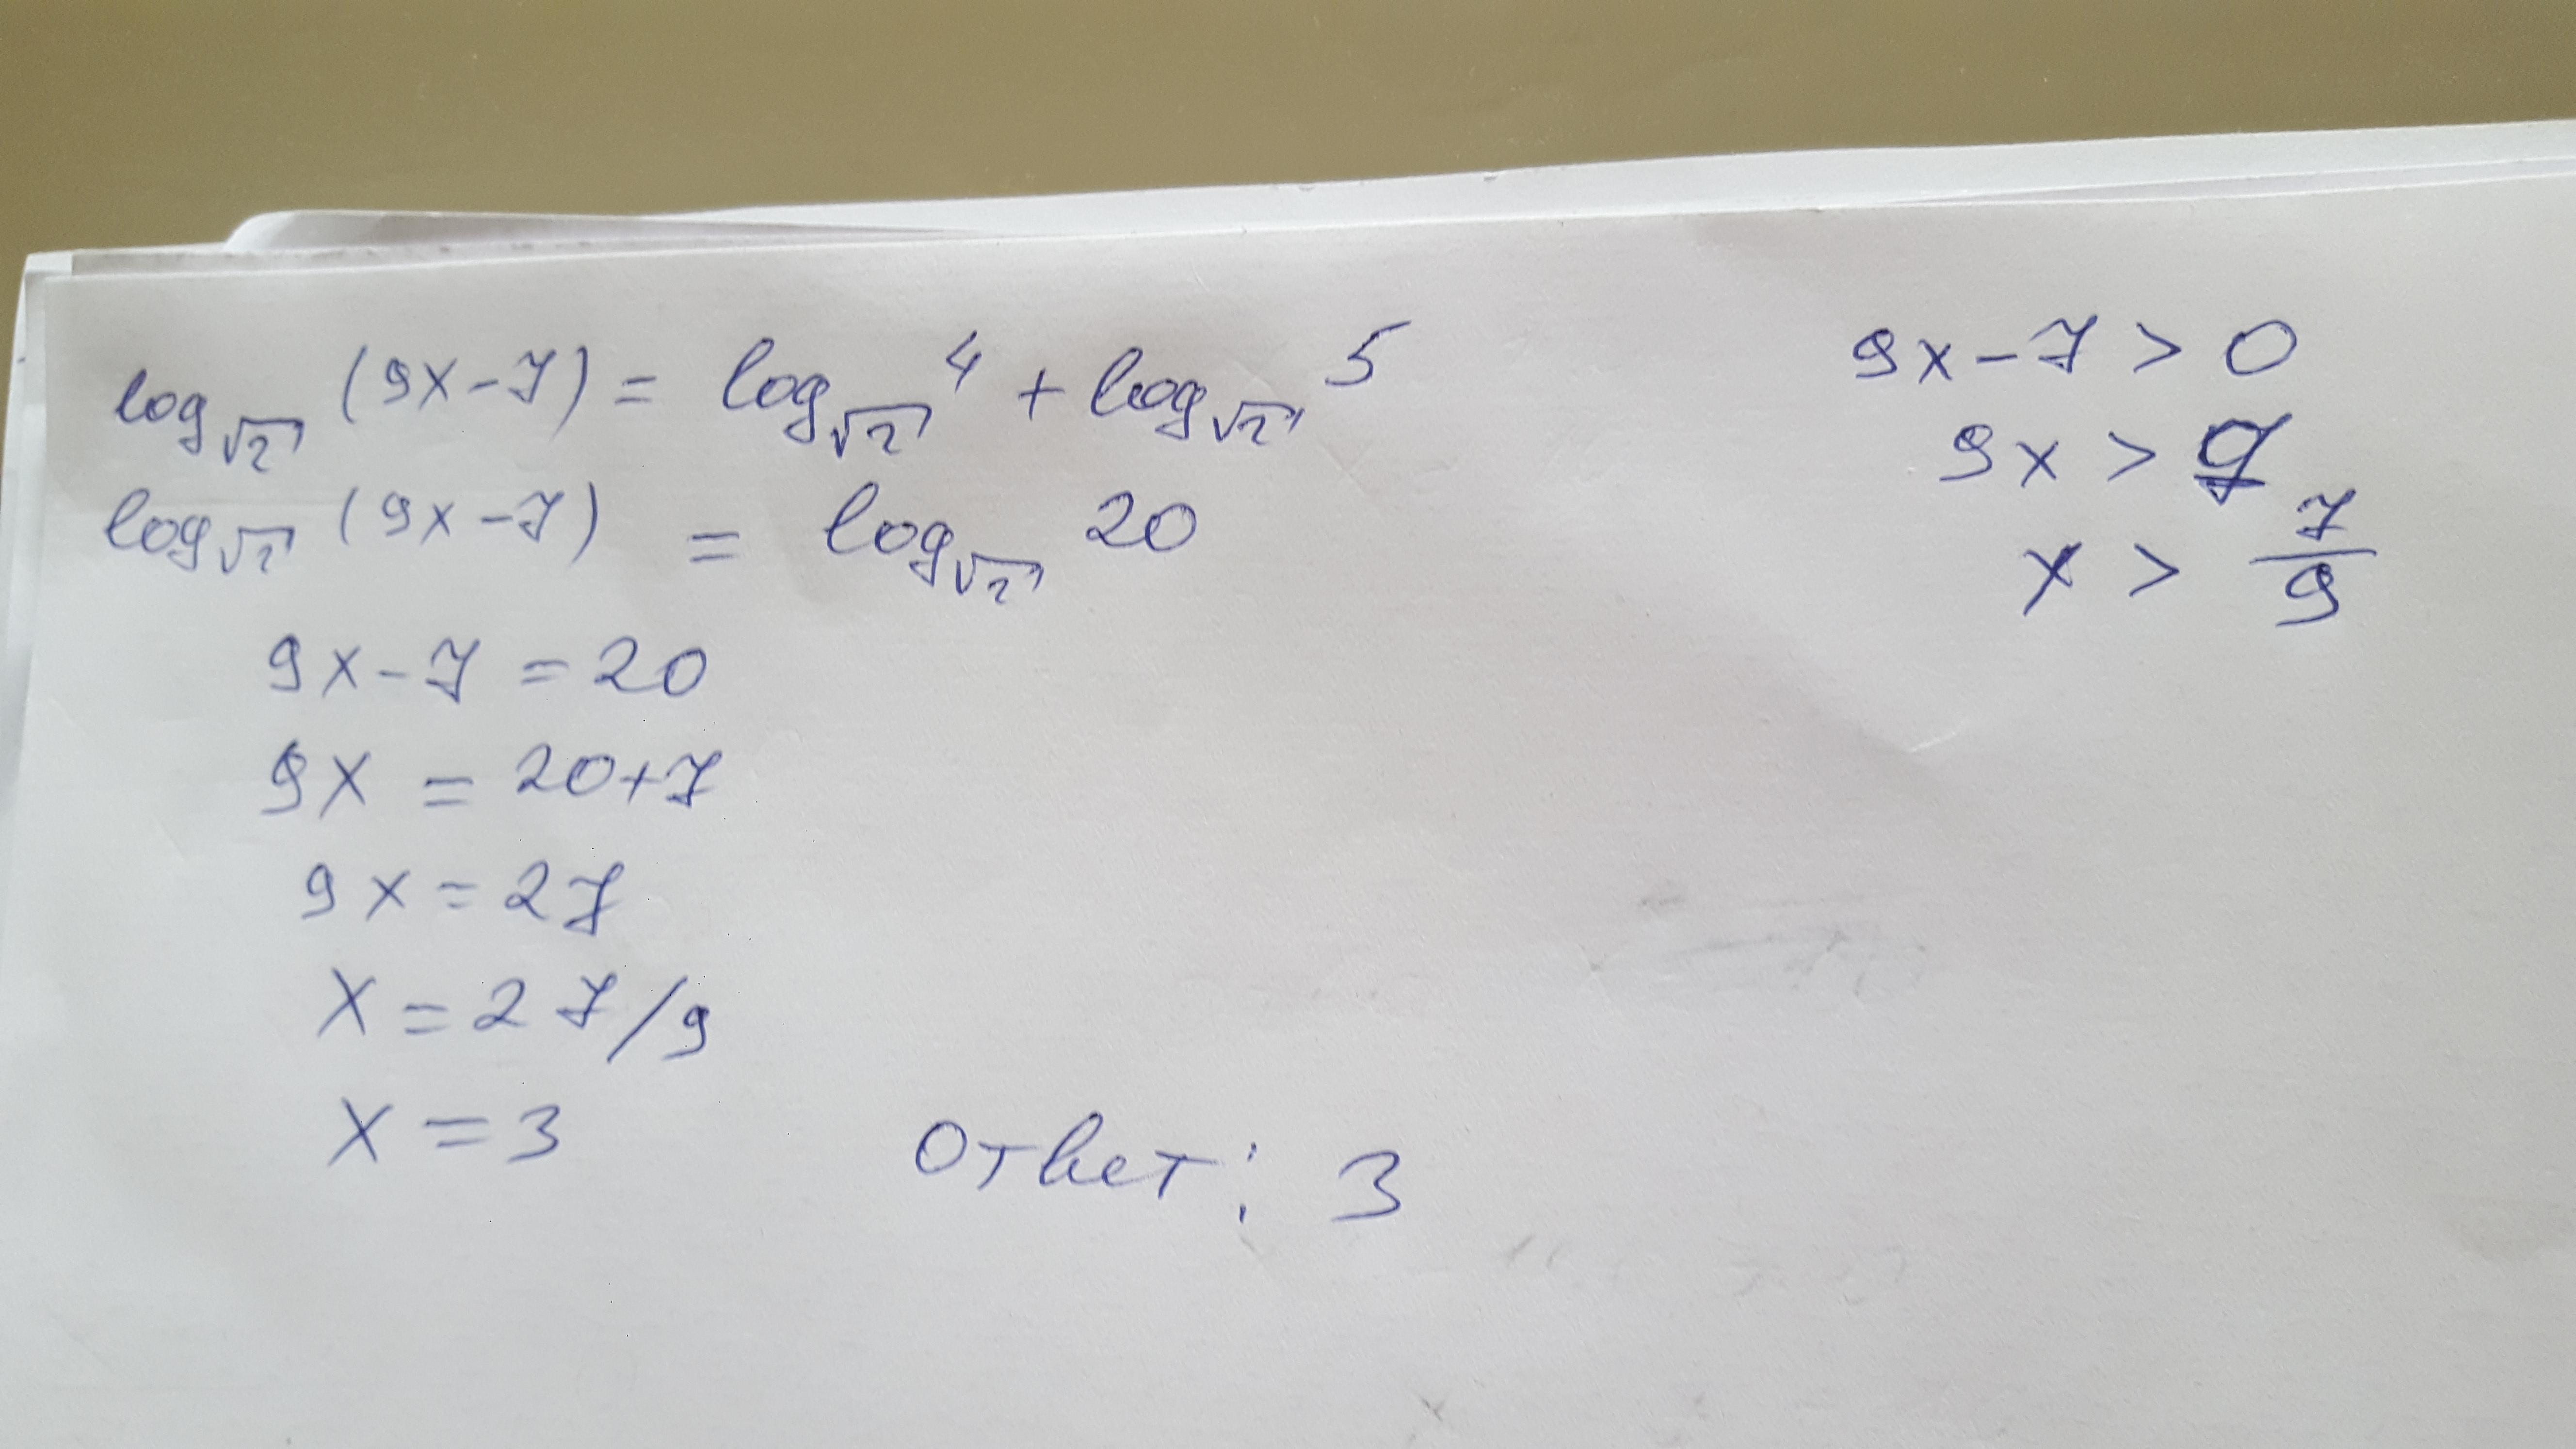 log√2 (9x-7) = log√2 4 + log√2 5
log√2 (9x-7) = log√2 20
9x-7 = 20
9x = 20+7
9x = 27
x = 27/9
x = 3
Ответ: 3
9x-7 > 0
9x > 7
x > 7/9